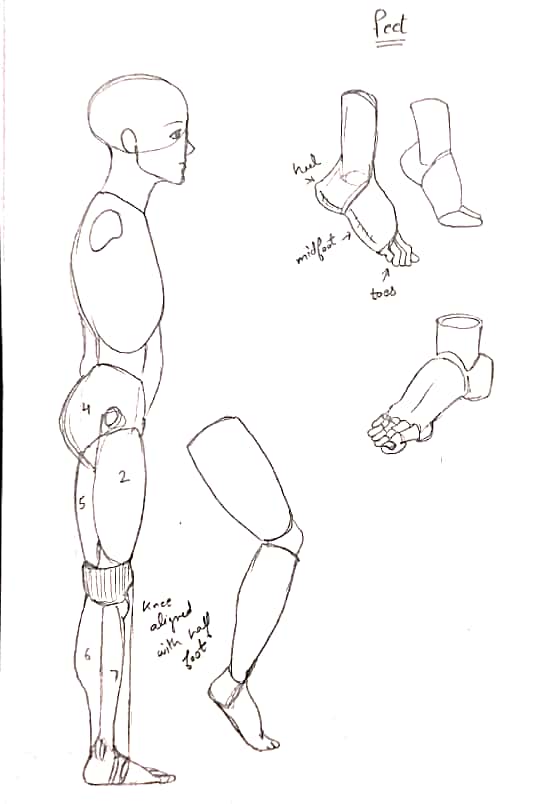 Feet
heel
midfoot
toes
4
2
5
knee
aligned
with half
foot
6
7